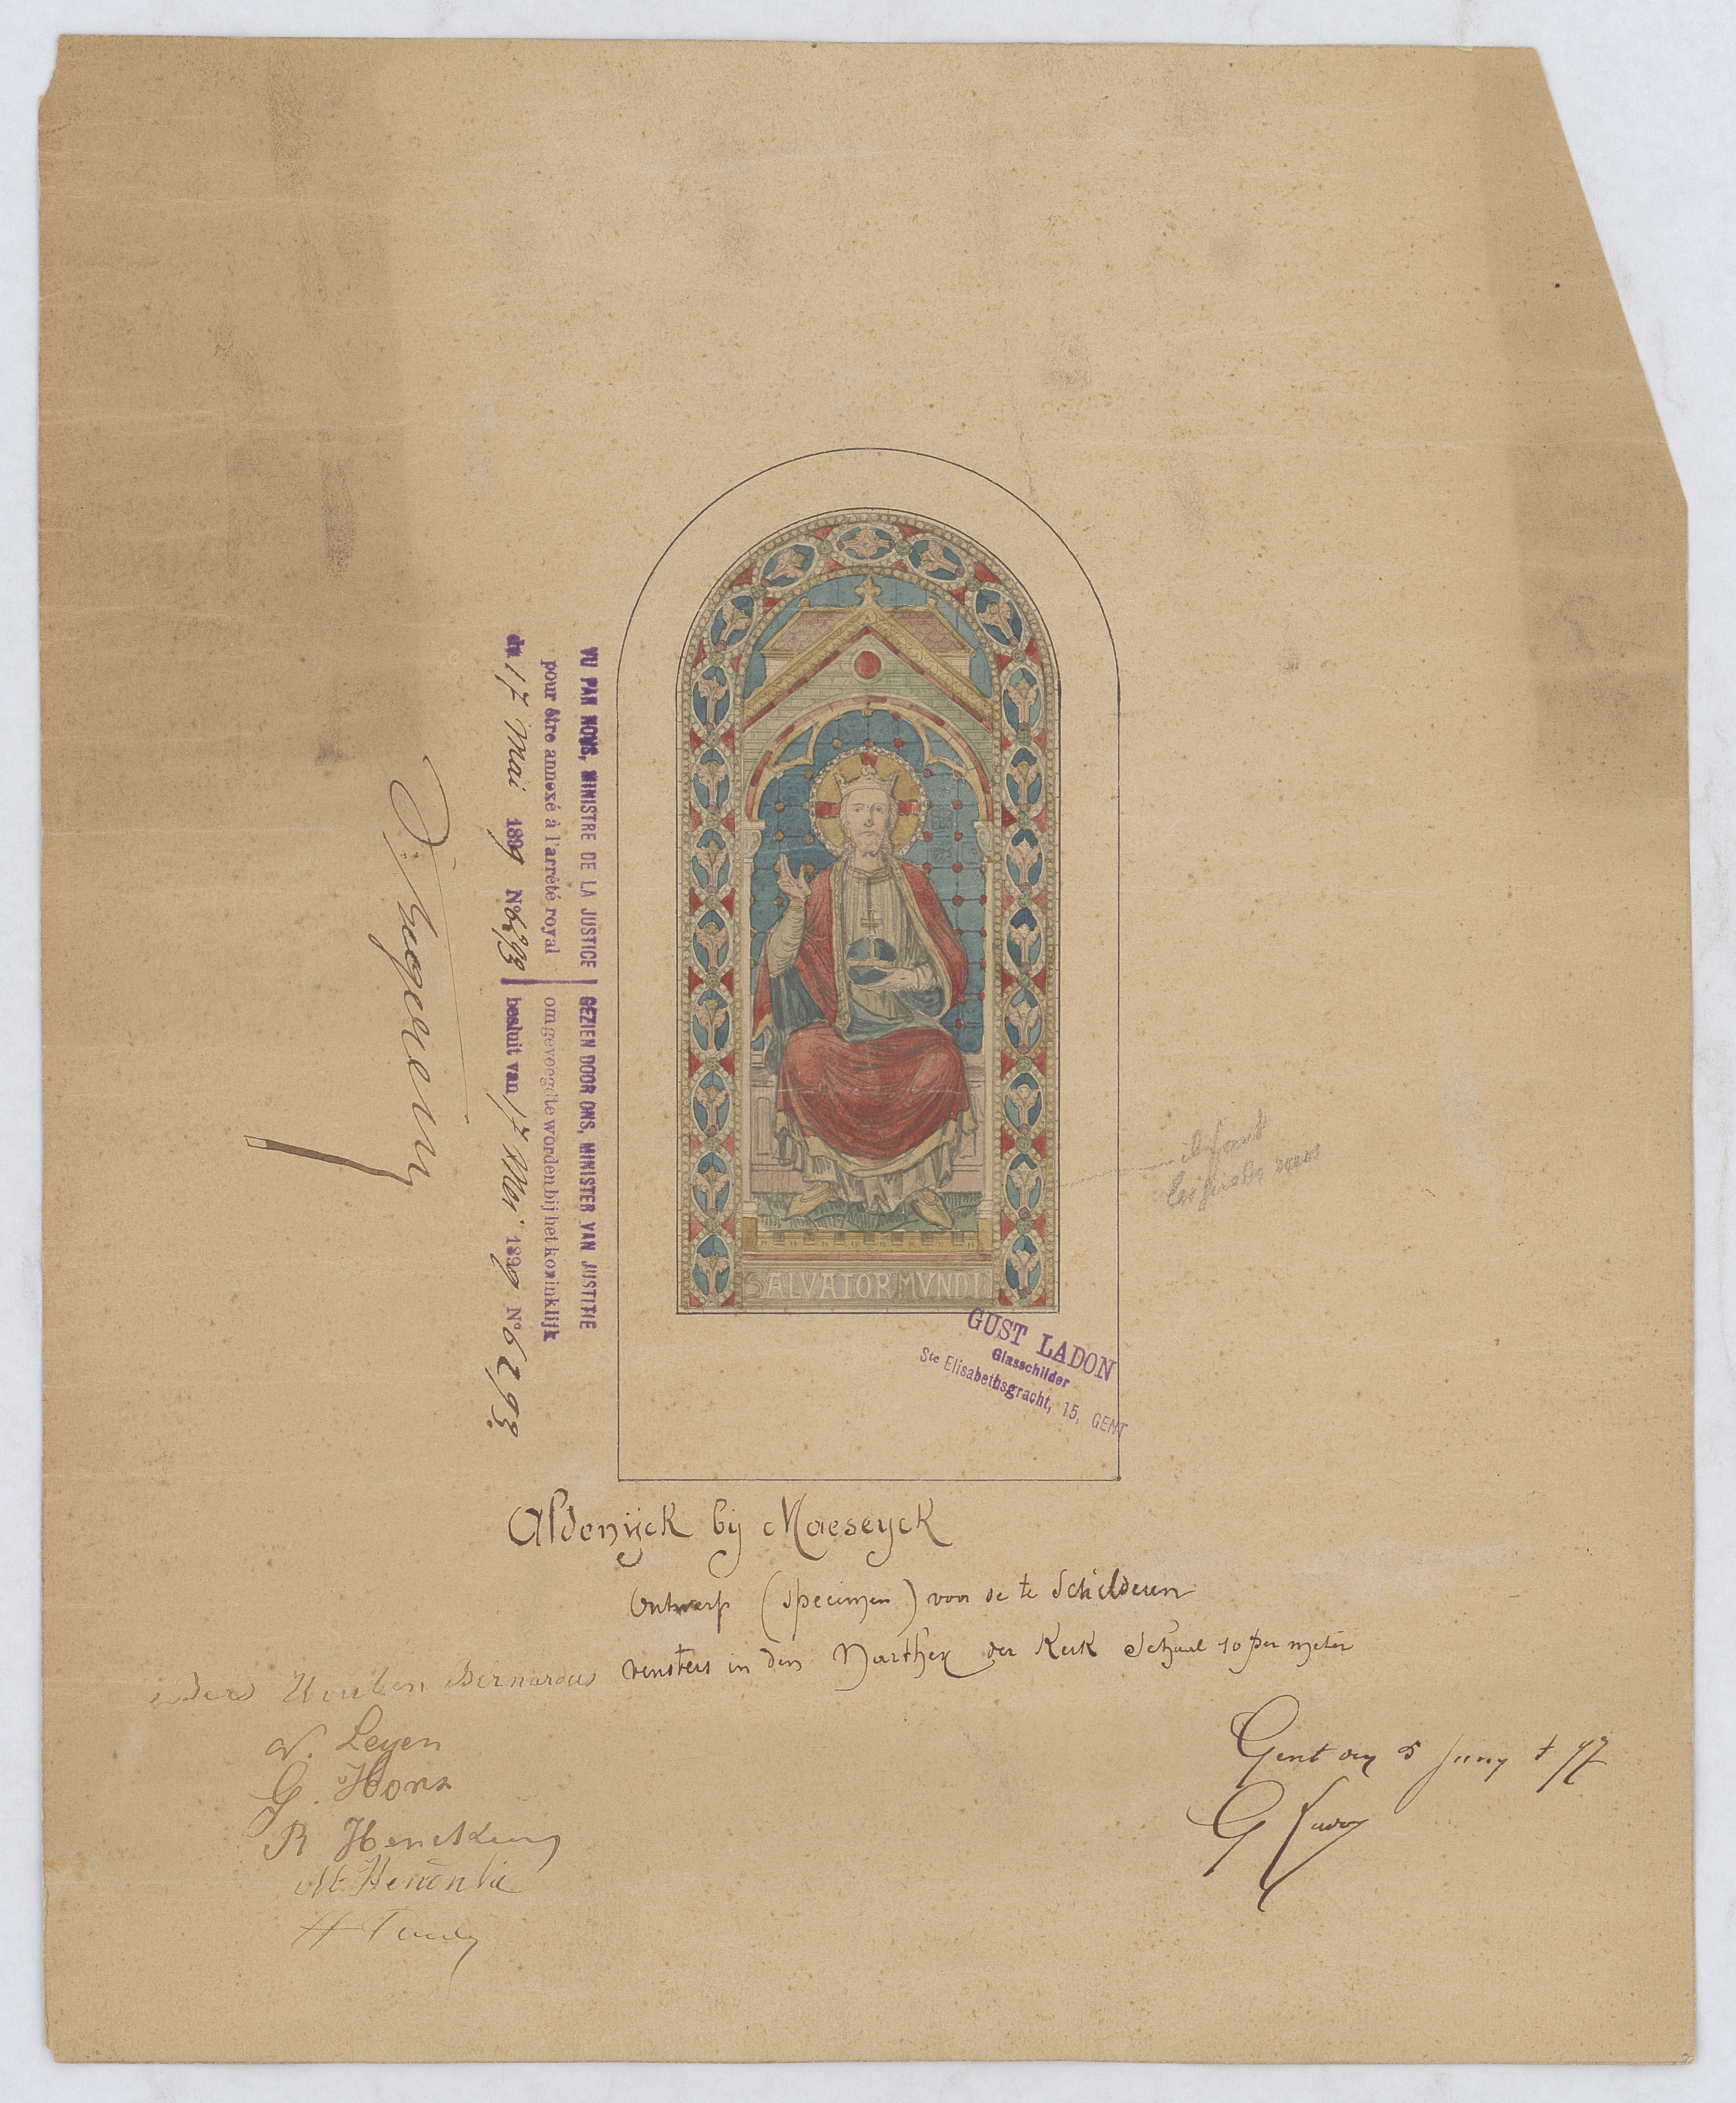 SALVATOR MVNDI
VU PAR NOUS, MINISTRE DE LA JUSTICE | GEZIEN DOOR ONS, MINISTER VAN JUSTITIE
pour être annexé à l'arrêté royal | om gevoegd te worden bij het koninklijk
du 17 Mai 1899 No 6293 | besluit van 17 Mei 1899 No 6293
il faut
GUST LADON
Glasschilder
Ste Elisabethsgracht, 15, GENT
Aldenijck bij Maeseyck
Ontwerp (specimen) voor de te Schilderen
vensters in den Narthex der Kerk Schaal 10 per meter
Houben Bernardus
V. Leyen
G. Hons
R
Gent den 5 Juny + 97
G Ladon